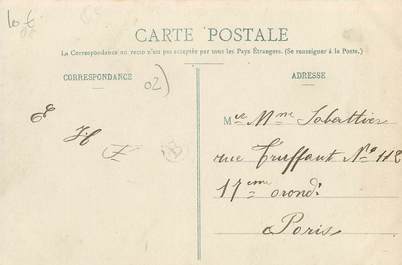 10 €
CARTE POSTALE
La Correspondance au recto n'est pas acceptée par tous les Pays Étrangers. (Se renseigner à la Poste.)
CORRESPONDANCE
02)
ADRESSE
E
H
F
B
Mr Mme Sabattier
rue Truffaut No 112
17eme arond:
Paris